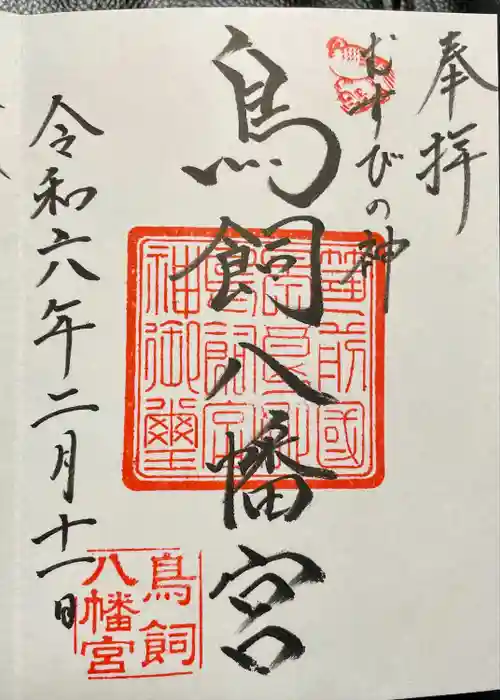 奉拝
むすびの神
鳥飼八幡宮
令和六年二月十一日
筑前國
鳥飼
八幡宮